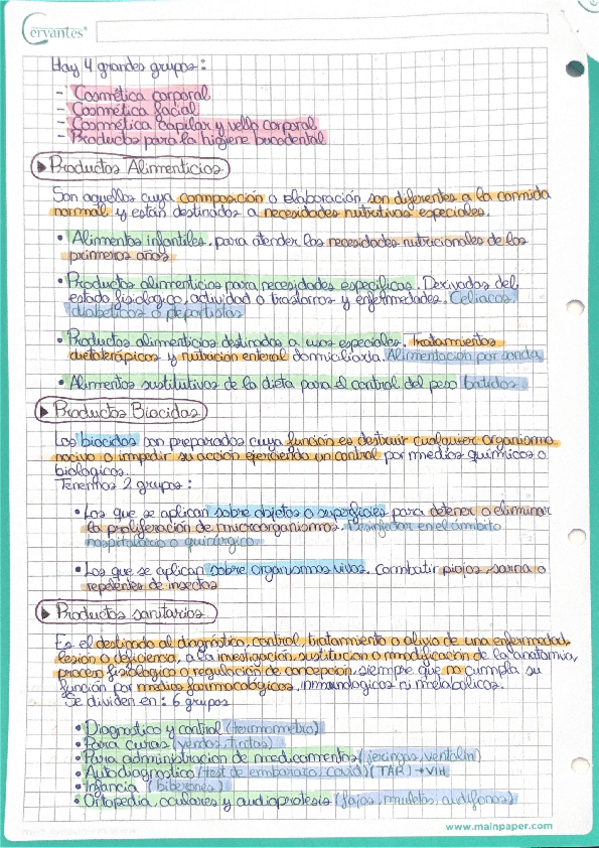 Cervantes
Hay 4 grandes grupos:
- Cosmética corporal
- Cosmética facial
- Cosmética capilar y vello corporal
- Productos para la higiene bucodental
▶ Productos Alimenticios
Son aquellos cuya composición o elaboración son diferentes a la comida
normal y están destinados a necesidades nutritivas especiales.
• Alimentos infantiles, para atender las necesidades nutricionales de los
primeros años
• Productos alimenticios para necesidades específicas. Derivadas del
estado fisiologico, actividad o trastornos y enfermedades. Celiacos,
diabeticos o deportistas
• Productos alimenticios destinados a usos especiales. Tratamientos
dietoterápicos y nutrición enteral domiciliaria. Alimentación por sonda
• Alimentos sustitutivos de la dieta para el control del peso batidos
▶ Productos Biocidas
Los biocidas son preparados cuya función es destruir cualquier organismo
nocivo o impedir su acción ejerciendo un control por medios químicos o
biologicos.
Tenemos 2 grupos:
• Los que se aplican sobre objetos o superficies para detener o eliminar
la proliferación de microorganismos. Desinfectar en el ámbito
hospitalario o quirúrgico
• Los que se aplican sobre organismos vivos. Combatir piojos, sarna o
repelentes de insectos
▶ Productos sanitarios
Es el destinado al diagnóstico, control, tratamiento o alivio de una enfermedad,
lesion o deficiensa, a la investigación, sustitucion o modificación de la anatomia,
proceso fisiologico o regulación de concepción, siempre que no cumpla su
función por medios farmacológicos, inmunologicos ni metabolicos.
Se dividen en: 6 grupos
• Diagnostico y control (termometro)
• Para curas (vendas, tiritas)
• Para administración de medicamentos (jeringas, ventolin)
• Autodiagnostico (test de embarazo, covid) (TAR) → VIH
• Infancia (biberones)
• Ortopedia, oculares y audioprotesis (fajas, muletas, audífonos)
www.mainpaper.com